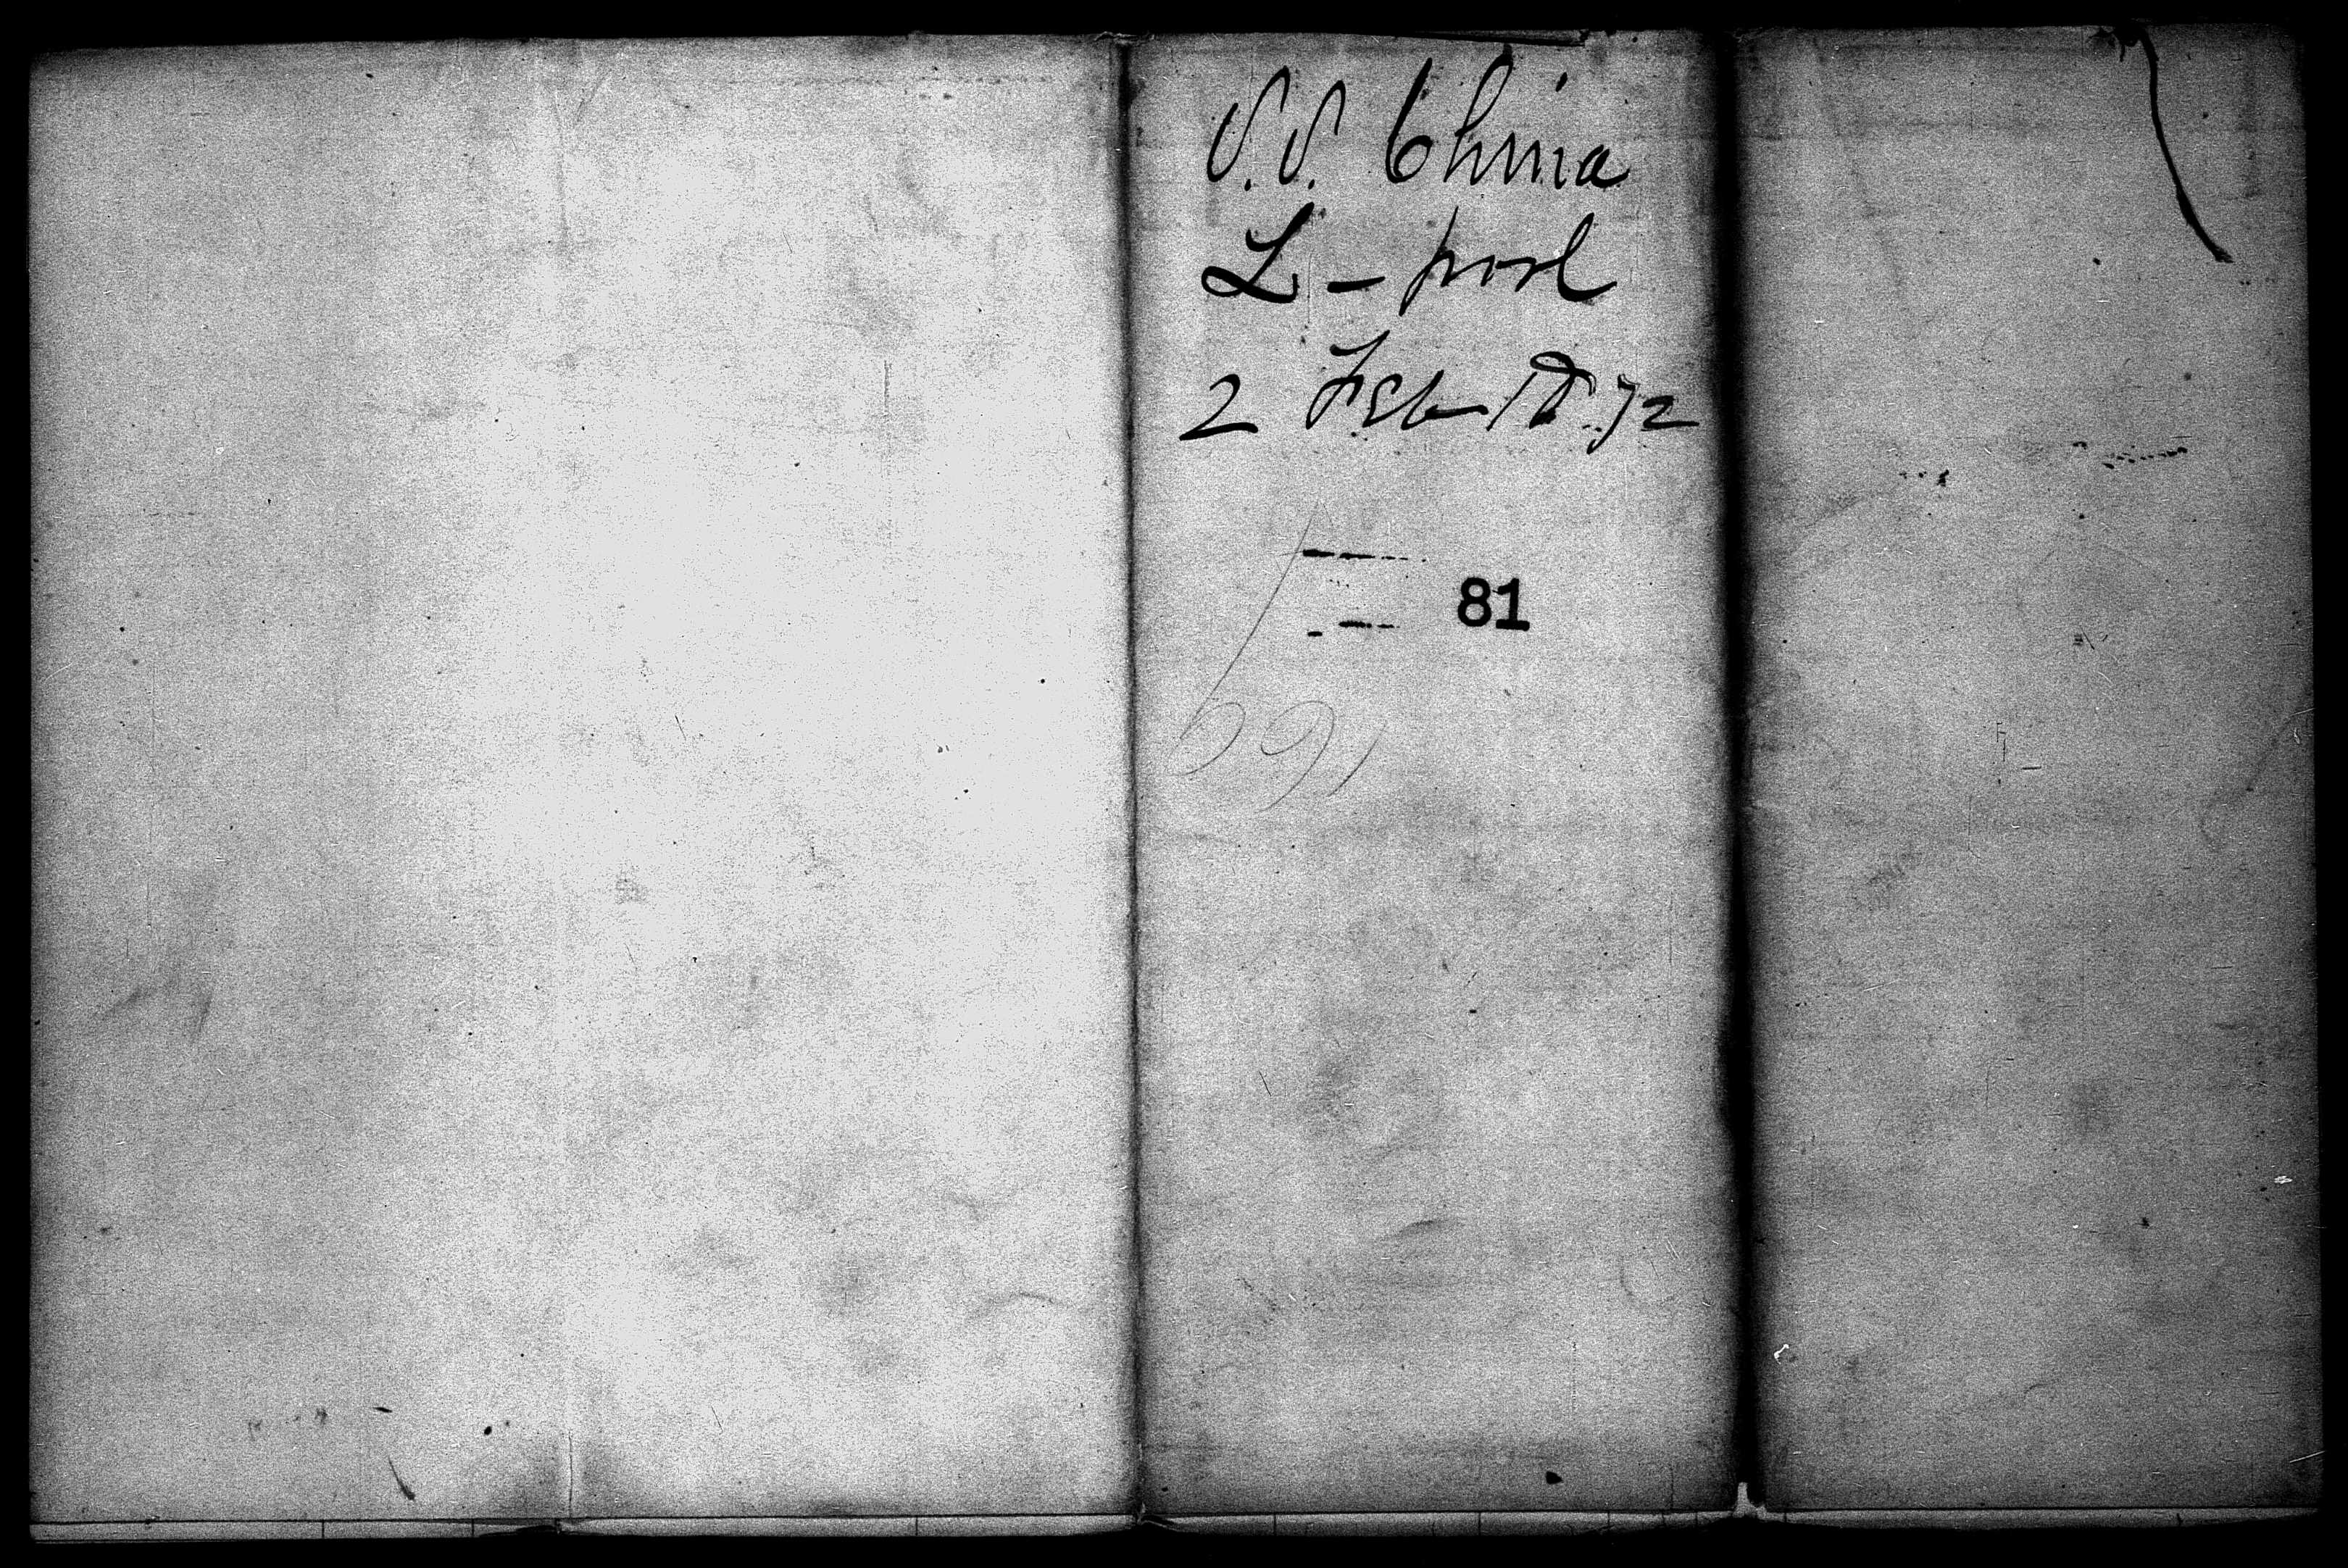 S.S. China
L-pool
2 Feb 1872
81